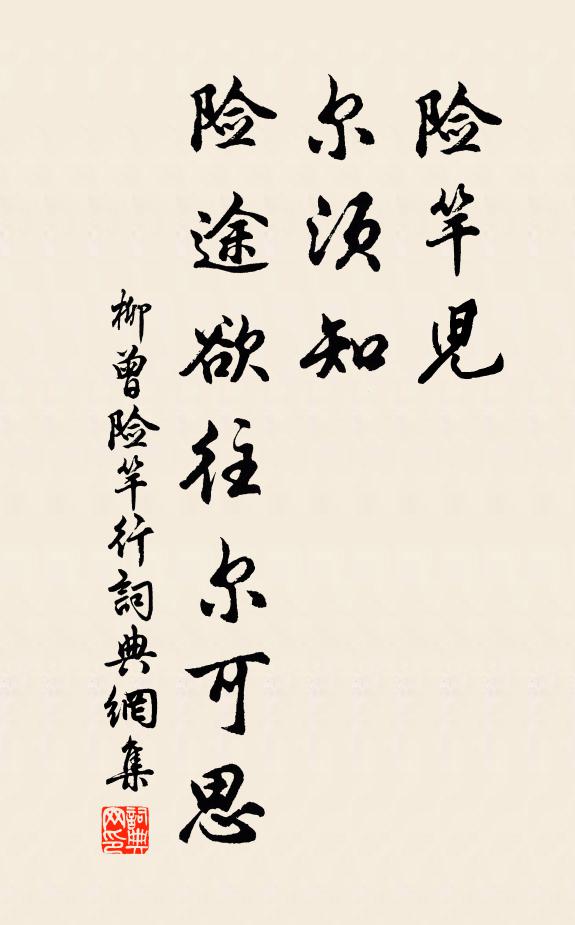 险竿児
尔须知
险途欲往尔可思
柳曾险竿行詞典網集
詞典网印